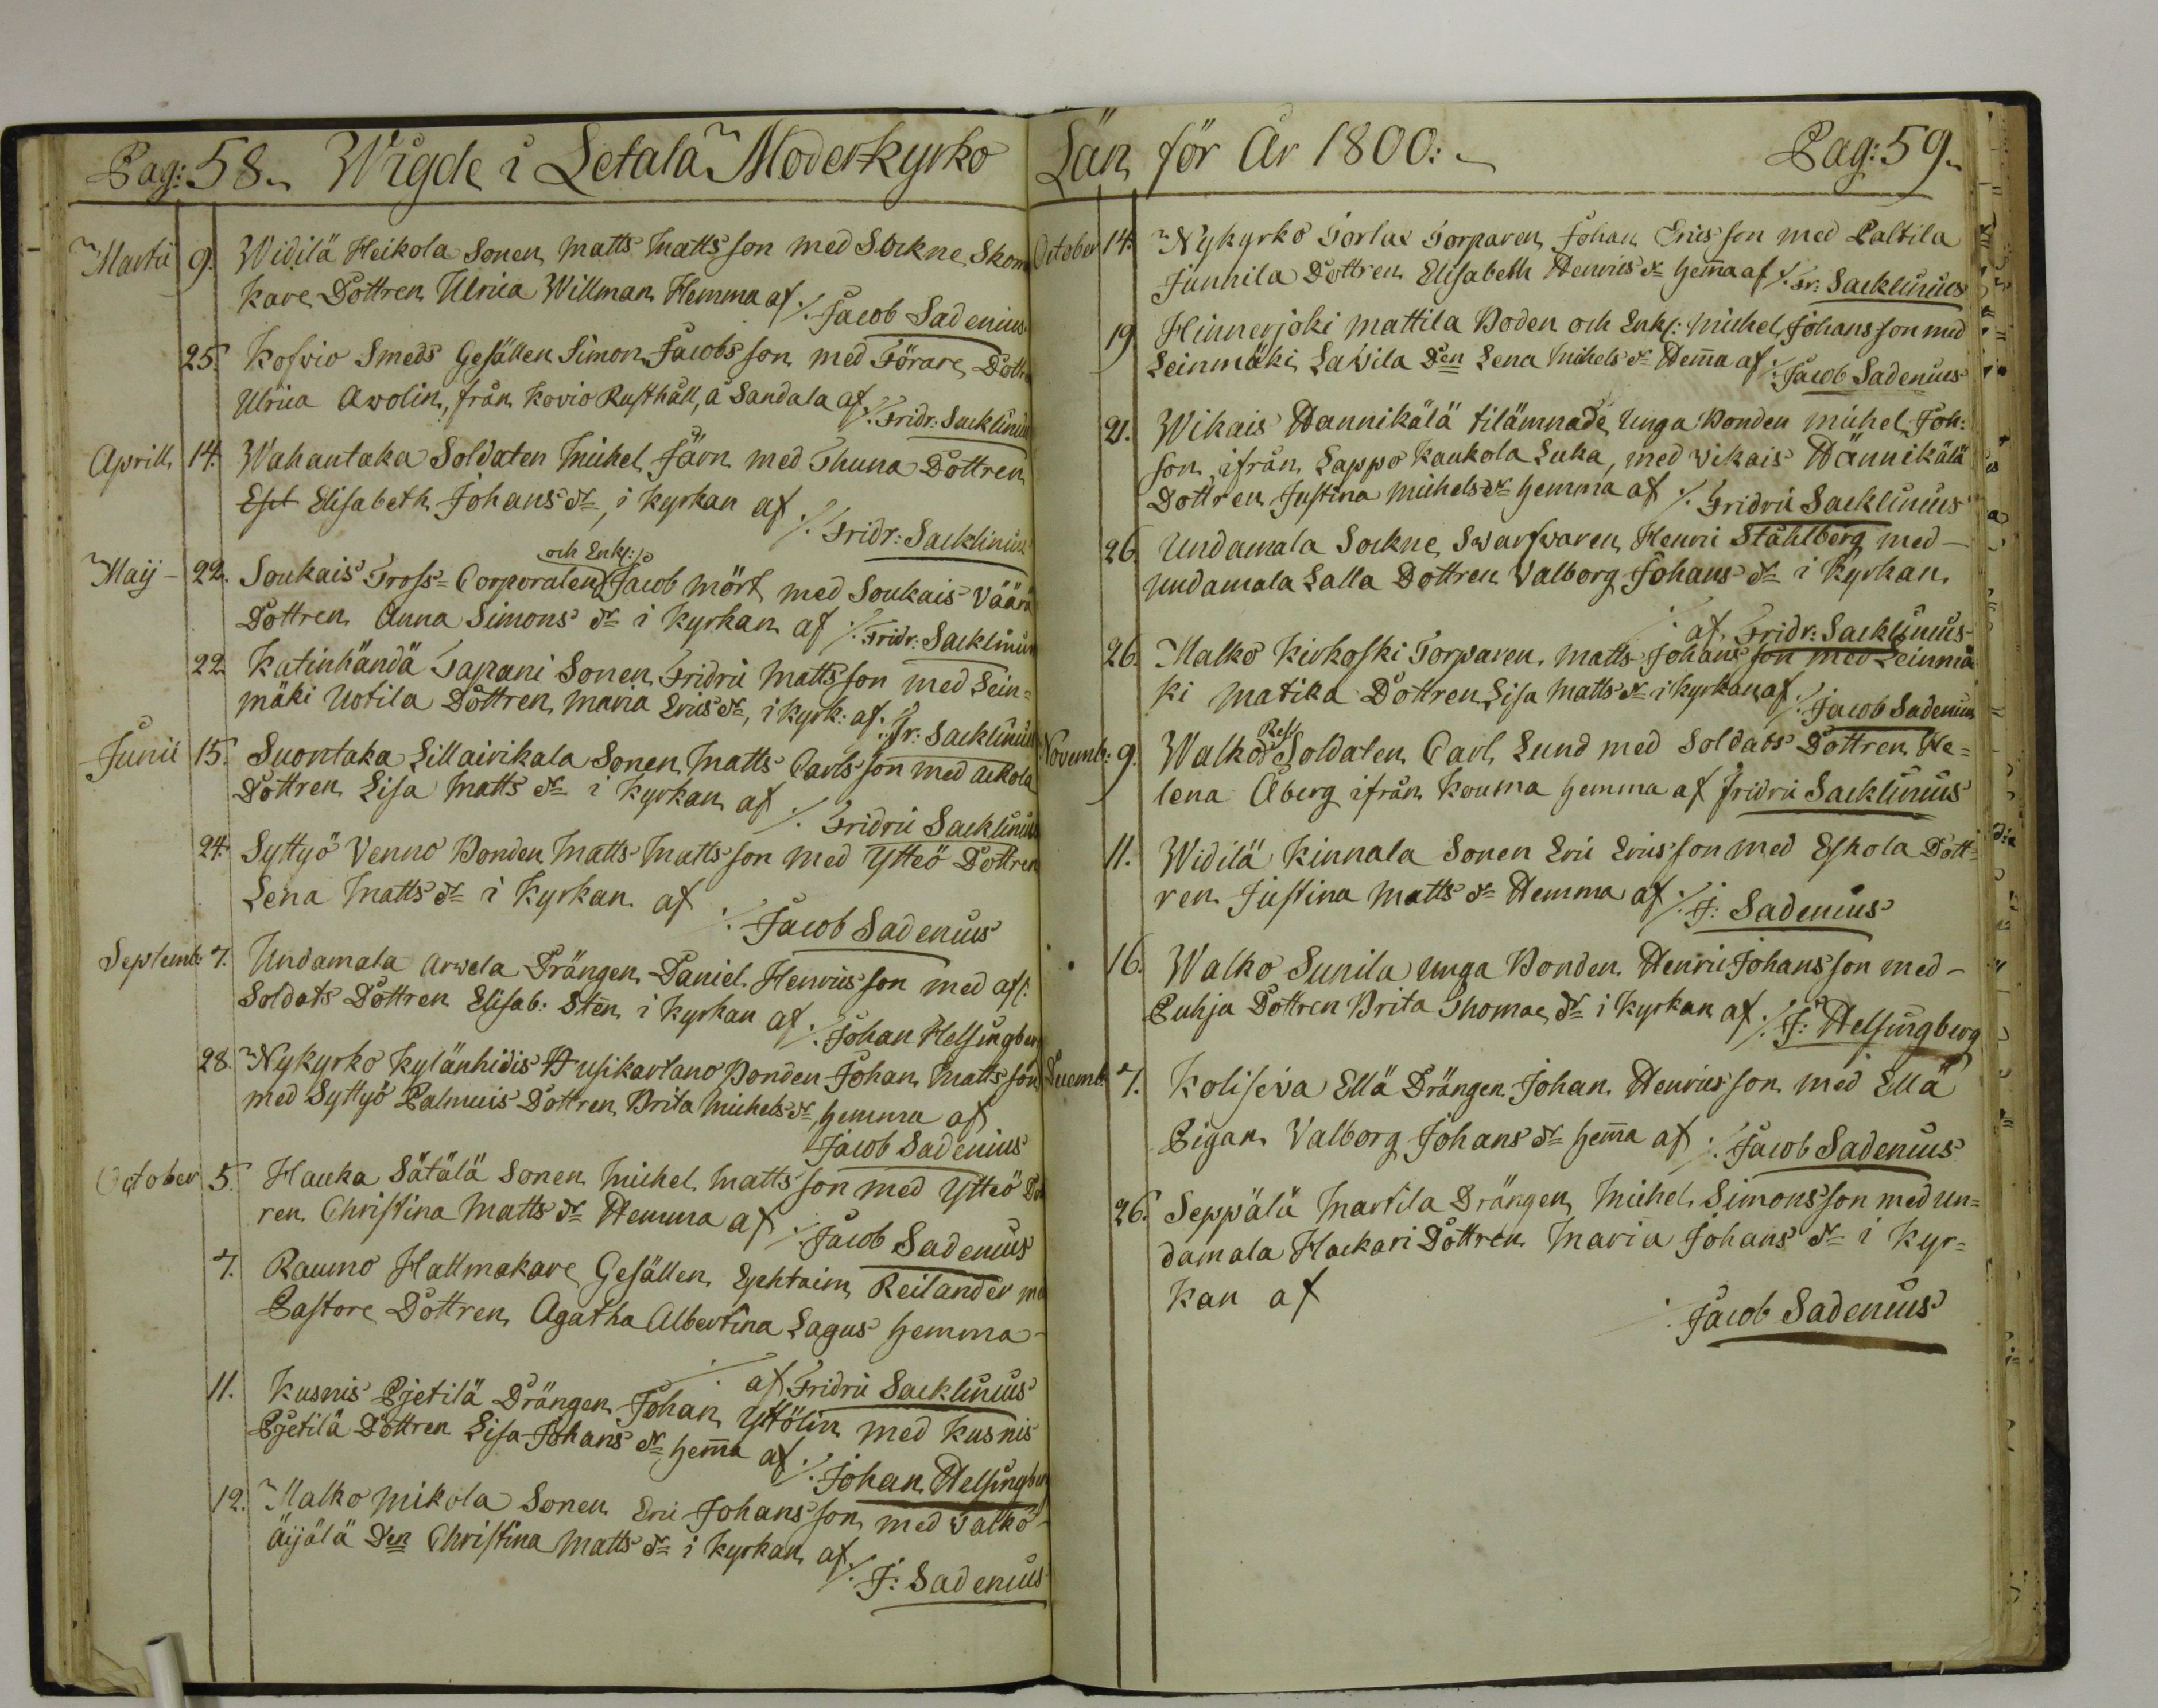 Pag: 58. Wigde i Letala Moderkyrko
Martii 9. Widilä Heikola Sonen Matts Mattsson med Sockne Skom
kare Dottren Ulrica Willman Hemma af ⁒ Jacob Sadenius
25. Kofvio Smeds Gesällen Simon Jacobsson med Förare Dottr
Ulrica Awolin, från Kovio Rusthåll, å Sandala af ⁒ Fridr: Sacklinius
Aprill 14. Wahantaka Soldaten Michel Järn med Thuna Dottren
Elisabeth Johans dr, i Kyrkan af ⁒ Fridr: Sacklinius
Maij – 22. Soukais Tross-Corporalen och Enkl: Jacob Mört med Soukais Väärä
Dottren Anna Simons dr i Kyrkan af ⁒ Fridr: Sacklinius
22. Katinhändä Tapani Sonen Fridric Mattsson med Lein-
mäki Uotila Dottren Maria Erics dr, i Kyrk: af ⁒ Fr: Sacklinius
Junii 15. Suontaka Lillairikala Sonen Matts Carlsson med Ackola
Dottren Lisa Matts dr i Kyrkan af ⁒ Fridric Sacklinius
24. Syttyö Venno Bonden Matts Mattsson med Ytteö Dottren
Lena Matts dr i Kyrkan af ⁒ Jacob Sadenius
Septemb: 7. Undamala Arwela Drängen Daniel Henricsson med afl:
Soldats Dottren Elisab: Sten i Kyrkan af ⁒ Johan Helsingberg
28. Nykyrko Kylänhidis Husikartano Bonden Johan Mattsson
med Syttyö Palmuis Dottren Brita Michels dr, hemma af
Jacob Sadenius
October 5. Hauka Sätälä Sonen Michel Mattsson med Ytteö Dot
ren Christina Matts dr Hemma af ⁒ Jacob Sadenius
7. Raumo Hattmakare Gesällen Ephraim Reilander med
Pastors Dottren Agatha Albertina Lagus hemma-
⁒ af Fridric Sacklinius
11. Kusnis Pjetilä Drängen Johan Yttölin med Kusnis
Pjetilä Dottren Lisa Johans dr hem̄a af ⁒ Johan Helsingberg
12. Malko Mikola Sonen Eric Johansson med Valko-
Äijälä Den Christina Matts dr i Kyrkan af ⁒ J: Sadenius
Län för År 1800. Pag: 59.
October 14. Nykyrko Torlax Torparen Johan Ericsson med Paltila
Junnila Dottren Elisabeth Henrics dr hem̄a af ⁒ Fr: Sacklinius
19. Hinnerjoki Mattila Boden och Enkl: Michel Johansson med
Leinmäki Lavila Den Lena Michels dr Hem̄a af ⁒ Jacob Sadenius
21. Wikais Hannikälä tilämnade Unga Bonden Michel Joh:
son ifrån Lappo Kaukola Luka, med Vikais Hännikälä
Dottren Justina Michels dr hemma af ⁒ Fridric Sacklinius
26. Undamala Sockne Swarfvaren Henric Ståhlberg med –
Undamala Salla Dottren Valborg Johans dr i Kyrkan
⁒ af Fridr: Sacklinius
26. Malko Kirkoski Torparen Matts Johansson med Leinmä
ki Matika Dottren Lisa Matts dr i Kyrkan af ⁒ Jacob Sadenius
Novemb: 9. Walko Soldaten Carl Lund med Soldats Dottren He-
lena Åberg ifrån Kouma hemma af Fridric Sacklinius
11. Widilä Kinnala Sonen Eric Ericsson med Eskola Dott-
ren Justina Matts dr Hemma af ⁒ J: Sadenius
16. Walko Sunila Unga Bonden Henric Johansson med –
Puhja Dottren Brita Thomæ dr i Kyrkan af ⁒ J: Helsingberg
Decemb: 7. Koliseva Ellä Drängen Johan Henricsson med Ellä
Pigan Valborg Johans dr hem̄a af ⁒ Jacob Sadenius
26. Seppälä Martila Drängen Michel Simonsson med Un-
damala Hackari Dottren Maria Johans dr i Kyr-
kan af ⁒ Jacob Sadenius